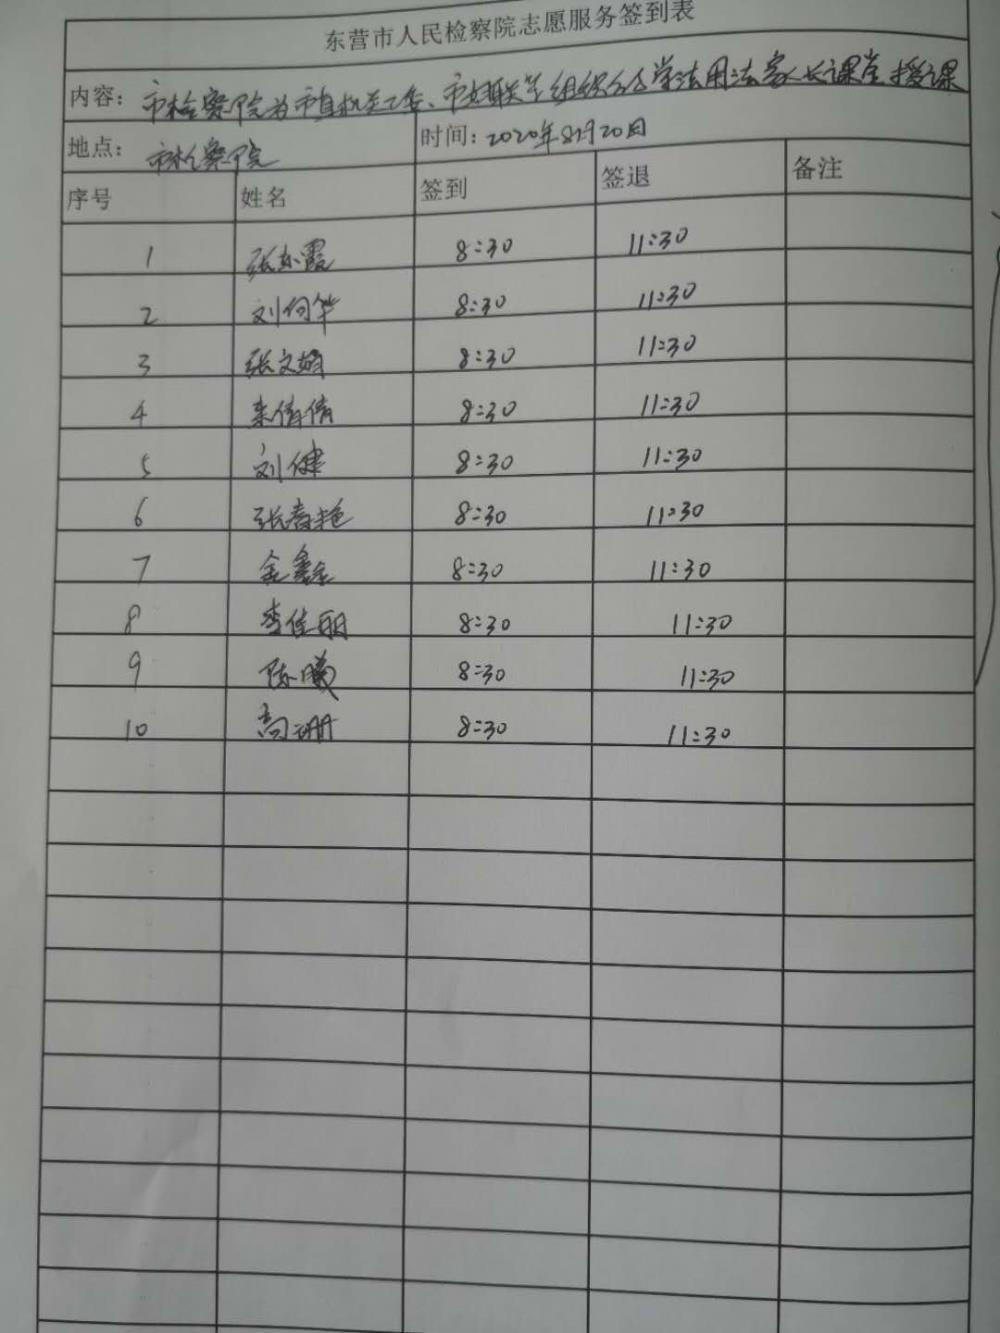 东营市人民检察院志愿服务签到表
内容: 市检察院为市直机关工委、市妇联等组织的学法用法家长课堂授课
地点: 市检察院 时间: 2020年8月20日
序号 姓名 签到 签退 备注
1 张东霞 8:30 11:30
2 刘向华 8:30 11:30
3 张文娟 8:30 11:30
4 来倩倩 8:30 11:30
5 刘健 8:30 11:30
6 张春艳 8:30 11:30
7 金鑫鑫 8:30 11:30
8 李佳丽 8:30 11:30
9 陈曦 8:30 11:30
10 高珊 8:30 11:30